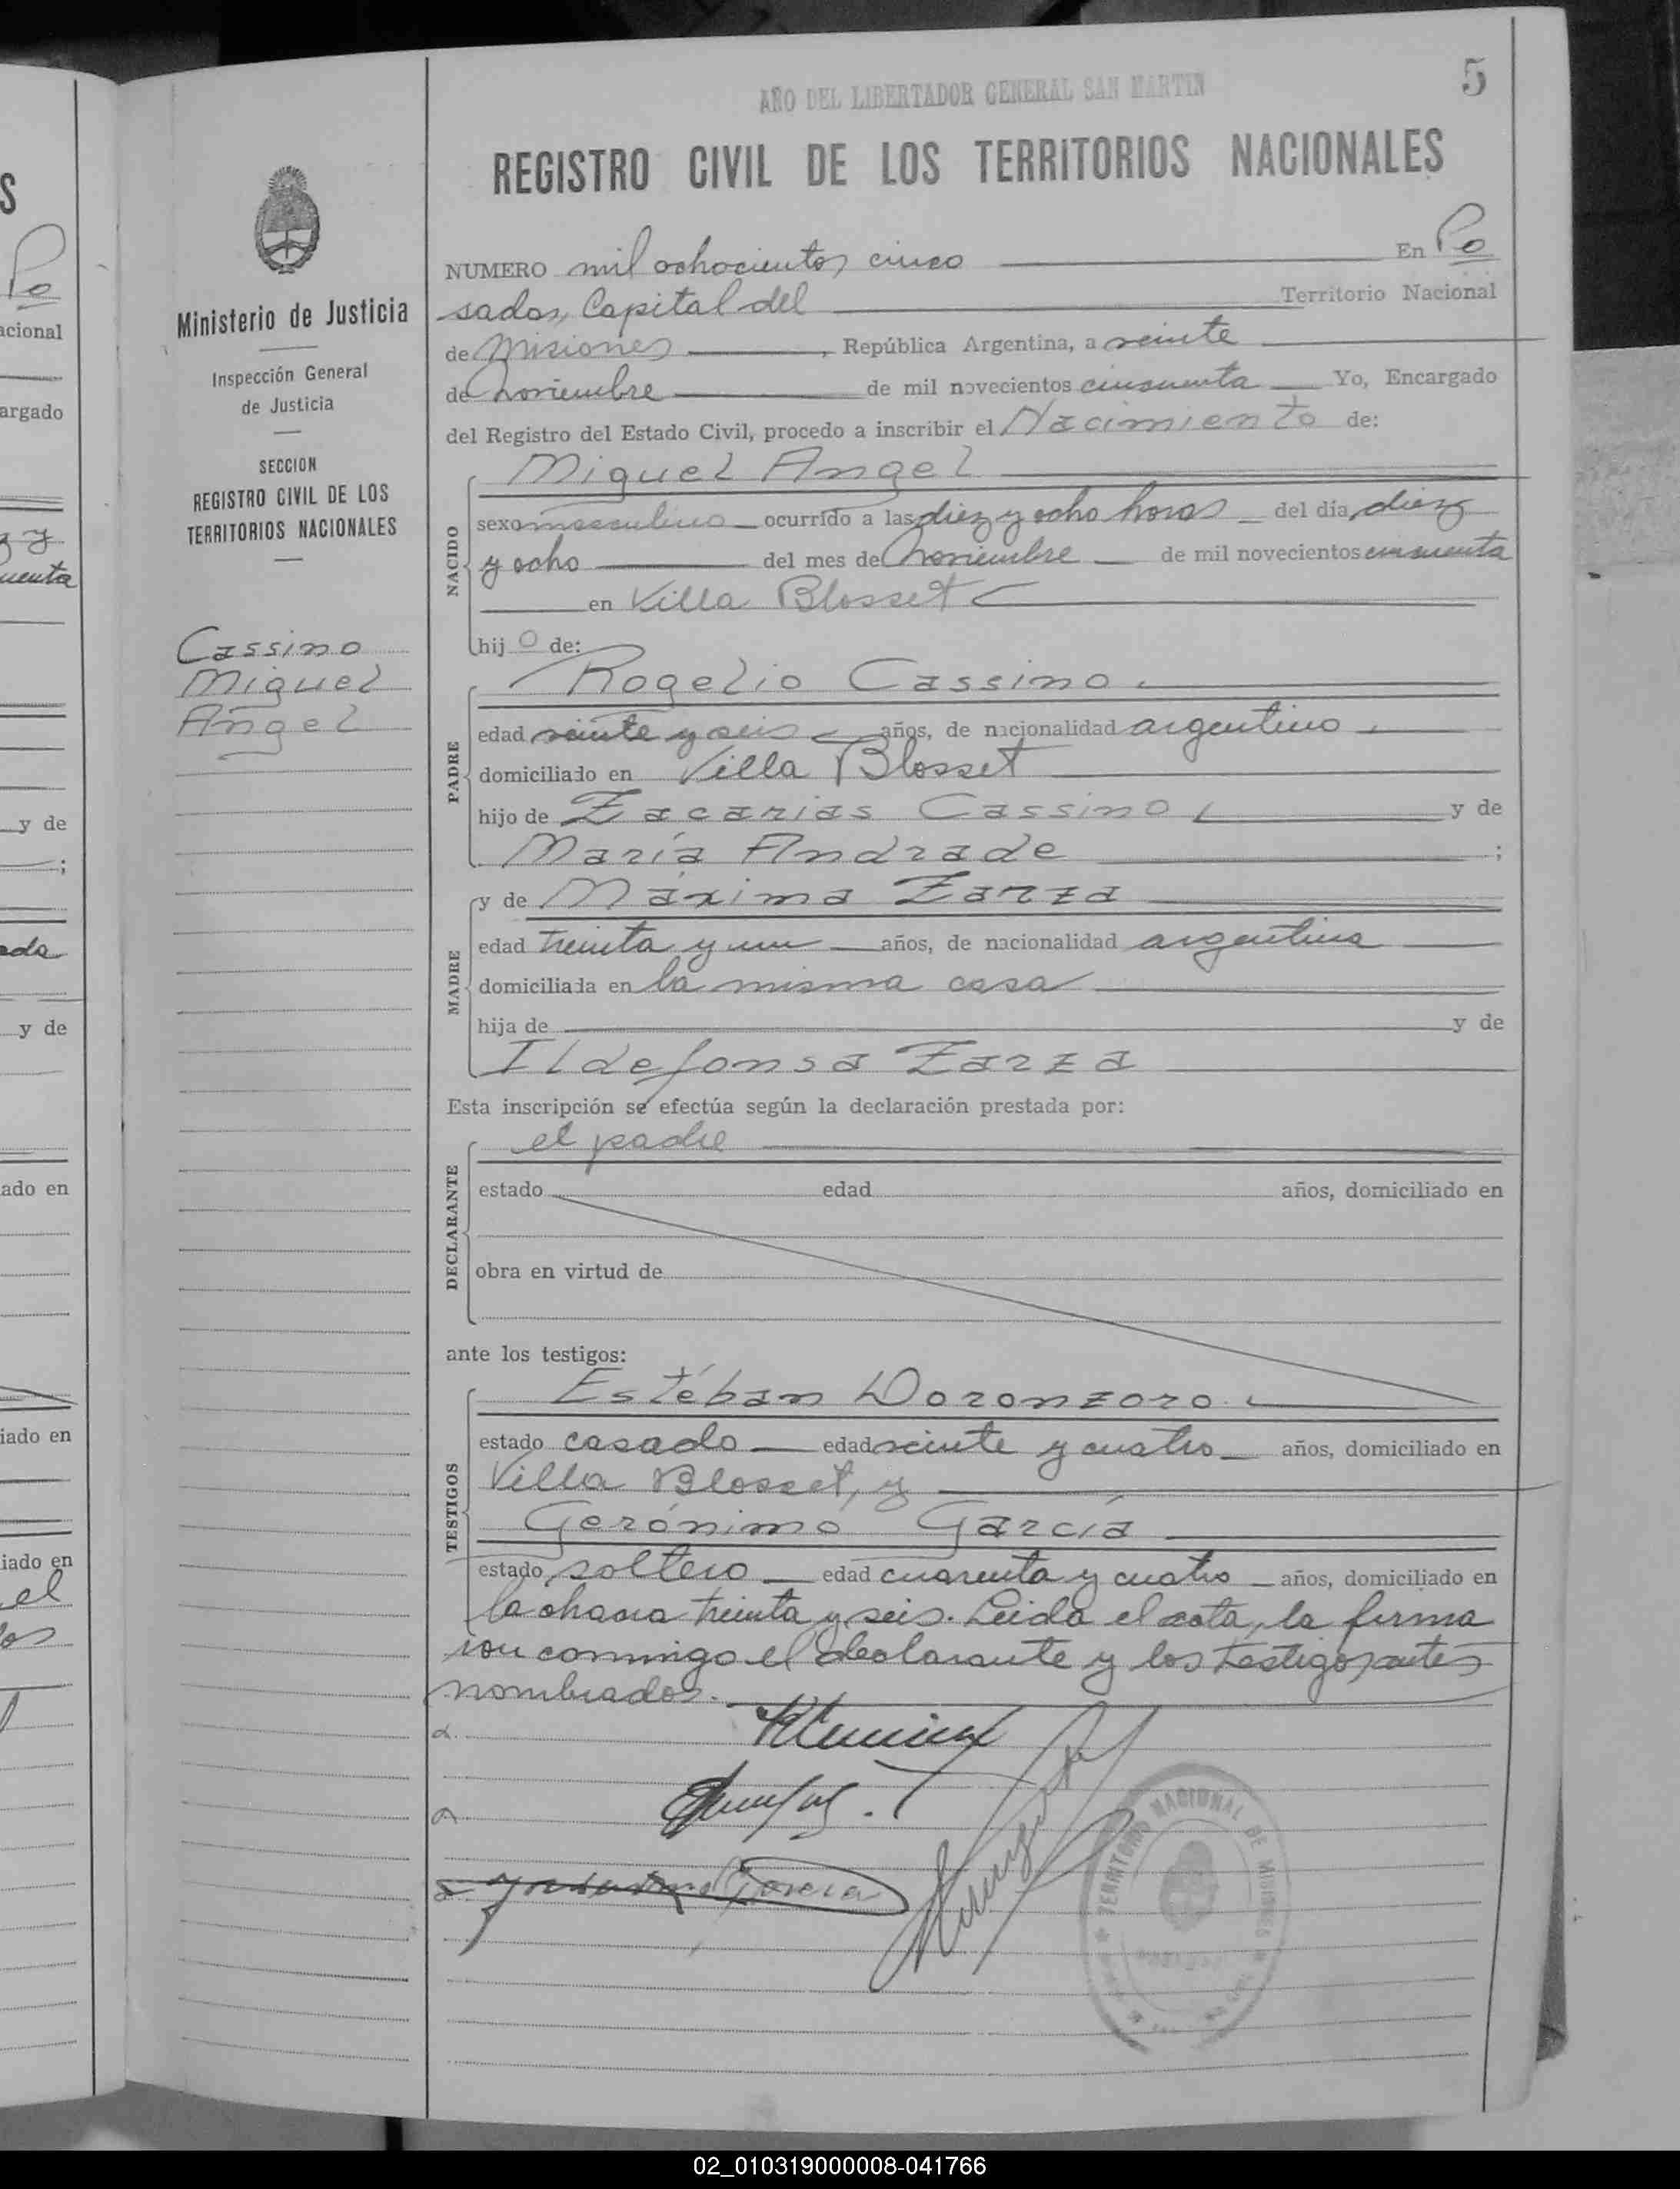 5
AÑO DEL LIBERTADOR GENERAL SAN MARTIN
REGISTRO CIVIL DE LOS TERRITORIOS NACIONALES
Ministerio de Justicia
Inspección General
de Justicia
SECCION
REGISTRO CIVIL DE LOS
TERRITORIOS NACIONALES
Cassino
Miguel
Angel
NUMERO mil ochocientos cinco En Po
sadas, Capital del Territorio Nacional
de Misiones, República Argentina, a veinte
de noviembre de mil novecientos cincuenta Yo, Encargado
del Registro del Estado Civil, procedo a inscribir el Nacimiento de:
NACIDO
Miguel Angel
sexo masculino ocurrido a las diez y ocho horas del día diez
y ocho del mes de noviembre de mil novecientos cincuenta
en Villa Blosset
hijo de:
PADRE
Rogelio Cassino
edad veinte y seis años, de nacionalidad argentino
domiciliado en Villa Blosset
hijo de Zacarias Cassino y de
María Andrade ;
MADRE
y de Máxima Zarza
edad treinta y un años, de nacionalidad argentina
domiciliada en la misma casa
hija de y de
Ildefonsa Zarza
Esta inscripción se efectúa según la declaración prestada por:
DECLARANTE
el padre
estado edad años, domiciliado en
obra en virtud de
ante los testigos:
TESTIGOS
Estéban Doronzoro
estado casado edad veinte y cuatro años, domiciliado en
Villa Blosset, y
Gerónimo García
estado soltero edad cuarenta y cuatro años, domiciliado en
la chacra treinta y seis. Leida el acta, la firma
ron conmigo el declarante y los testigos antes
nombrados.
Garcia
TERRITORIO NACIONAL DE MISIONES
y de
acional
argado
cuenta
y de
ado en
iado en
iado en
el
02_010319000008-041766